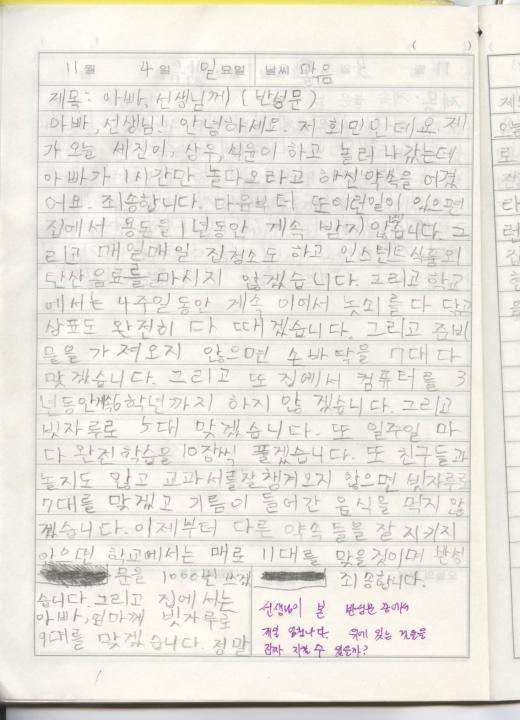 11월 4일 일요일 날씨 맑음
제목: 아빠, 선생님께 (반성문)
아빠, 선생님! 안녕하세요. 저 희민인데요. 제
가 오늘 세진이, 상우, 석윤이 하고 놀러 나갔는데
아빠가 1시간만 놀다오라고 하신 약속을 어겼
어요. 죄송합니다. 다음부터 또 이런일이 있으면
집에서 용돈을 1년동안 계속 받지 않겠습니다. 그
리고 매일매일 집청소도 하고 인스턴트 식품외
탄산 음료를 마시지 않겠습니다. 그리고 학교
에서는 4주일 동안 계속 이어서 놋쇠를 다 닦고
상표도 완전히 다 때겠습니다. 그리고 준비
물을 가져오지 않으면 손바닥을 7대 다
맞겠습니다. 그리고 또 집에서 컴퓨터를 3
년동안 계속 6학년까지 하지 않겠습니다. 그리고
빗자루로 5대 맞겠습니다. 또 일주일 마
다 완전학습을 10장씩 풀겠습니다. 또 친구들과
놀지도 않고 교과서를 잘 챙겨오지 않으면 빗자루로
7대를 맞겠고 기름이 들어간 음식을 먹지 않
겠습니다. 이제부터 다른 약속들을 잘 지키지
않으면 학교에서는 매로 11대를 맞을것이며 반성
문을 1000번 쓰겠
습니다. 그리고 집에서는
아빠, 엄마께 빗자루로
9대를 맞겠습니다. 정말
죄송합니다.
선생님이 본 반성문 중에서
제일 입니다. 위에 있는 것들을
과연 지킬 수 있을까?